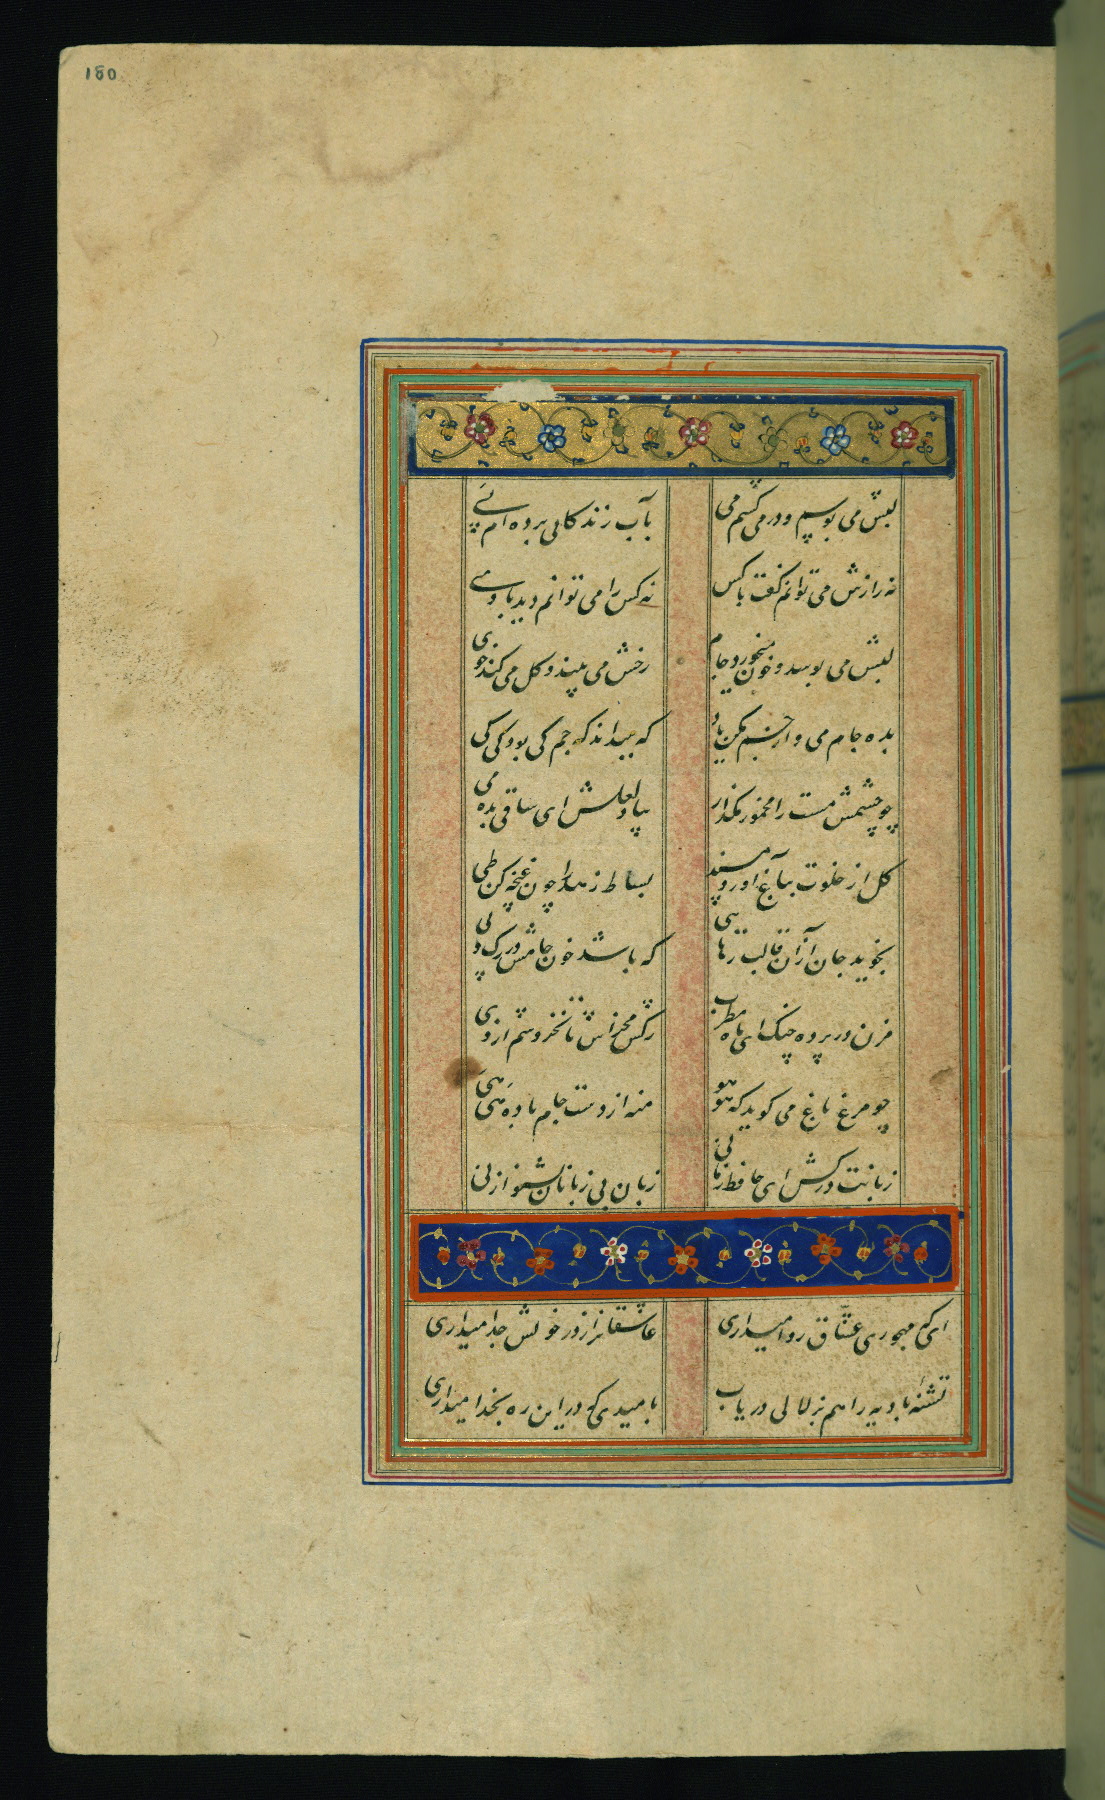 180
لبش می بوسم و در می کشم می
بآب زندکانی برده ام پی
نه رازش می توانم کفت با کس
نه کس را می توانم دید با وی
لبش می بوسد و خون میخورد جام
رخش می بیند و کل می کند خوی
بده جام می و از جم مکن یاد
که میداند که جم کی بود و کی کی
چو چشمش مست را مخمور مکذار
بیاد لعلش ای ساقی بده می
کل از خلوت بباغ اورد مسند
بساط زهد را چون غنچه کن طی
نجوید جان از آن قالب
که باشد خون جامش در رک و پی
بزن در پرده چنک ای ماه مطرب
رکش بخراش تا بخروشم از وی
چو مرغ باغ می کوید که هو هو
منه از دست جام باده هی هی
زبانت درکش ای حافظ زمانی
زبان بی زبانان بشنو از نی
ای که مهجوری عشاق روا میداری
عاشقانرا ز در خویش جدا میداری
تشنه بادیه را هم بزلالی دریاب
بامیدی که در این ره بخدا میداری